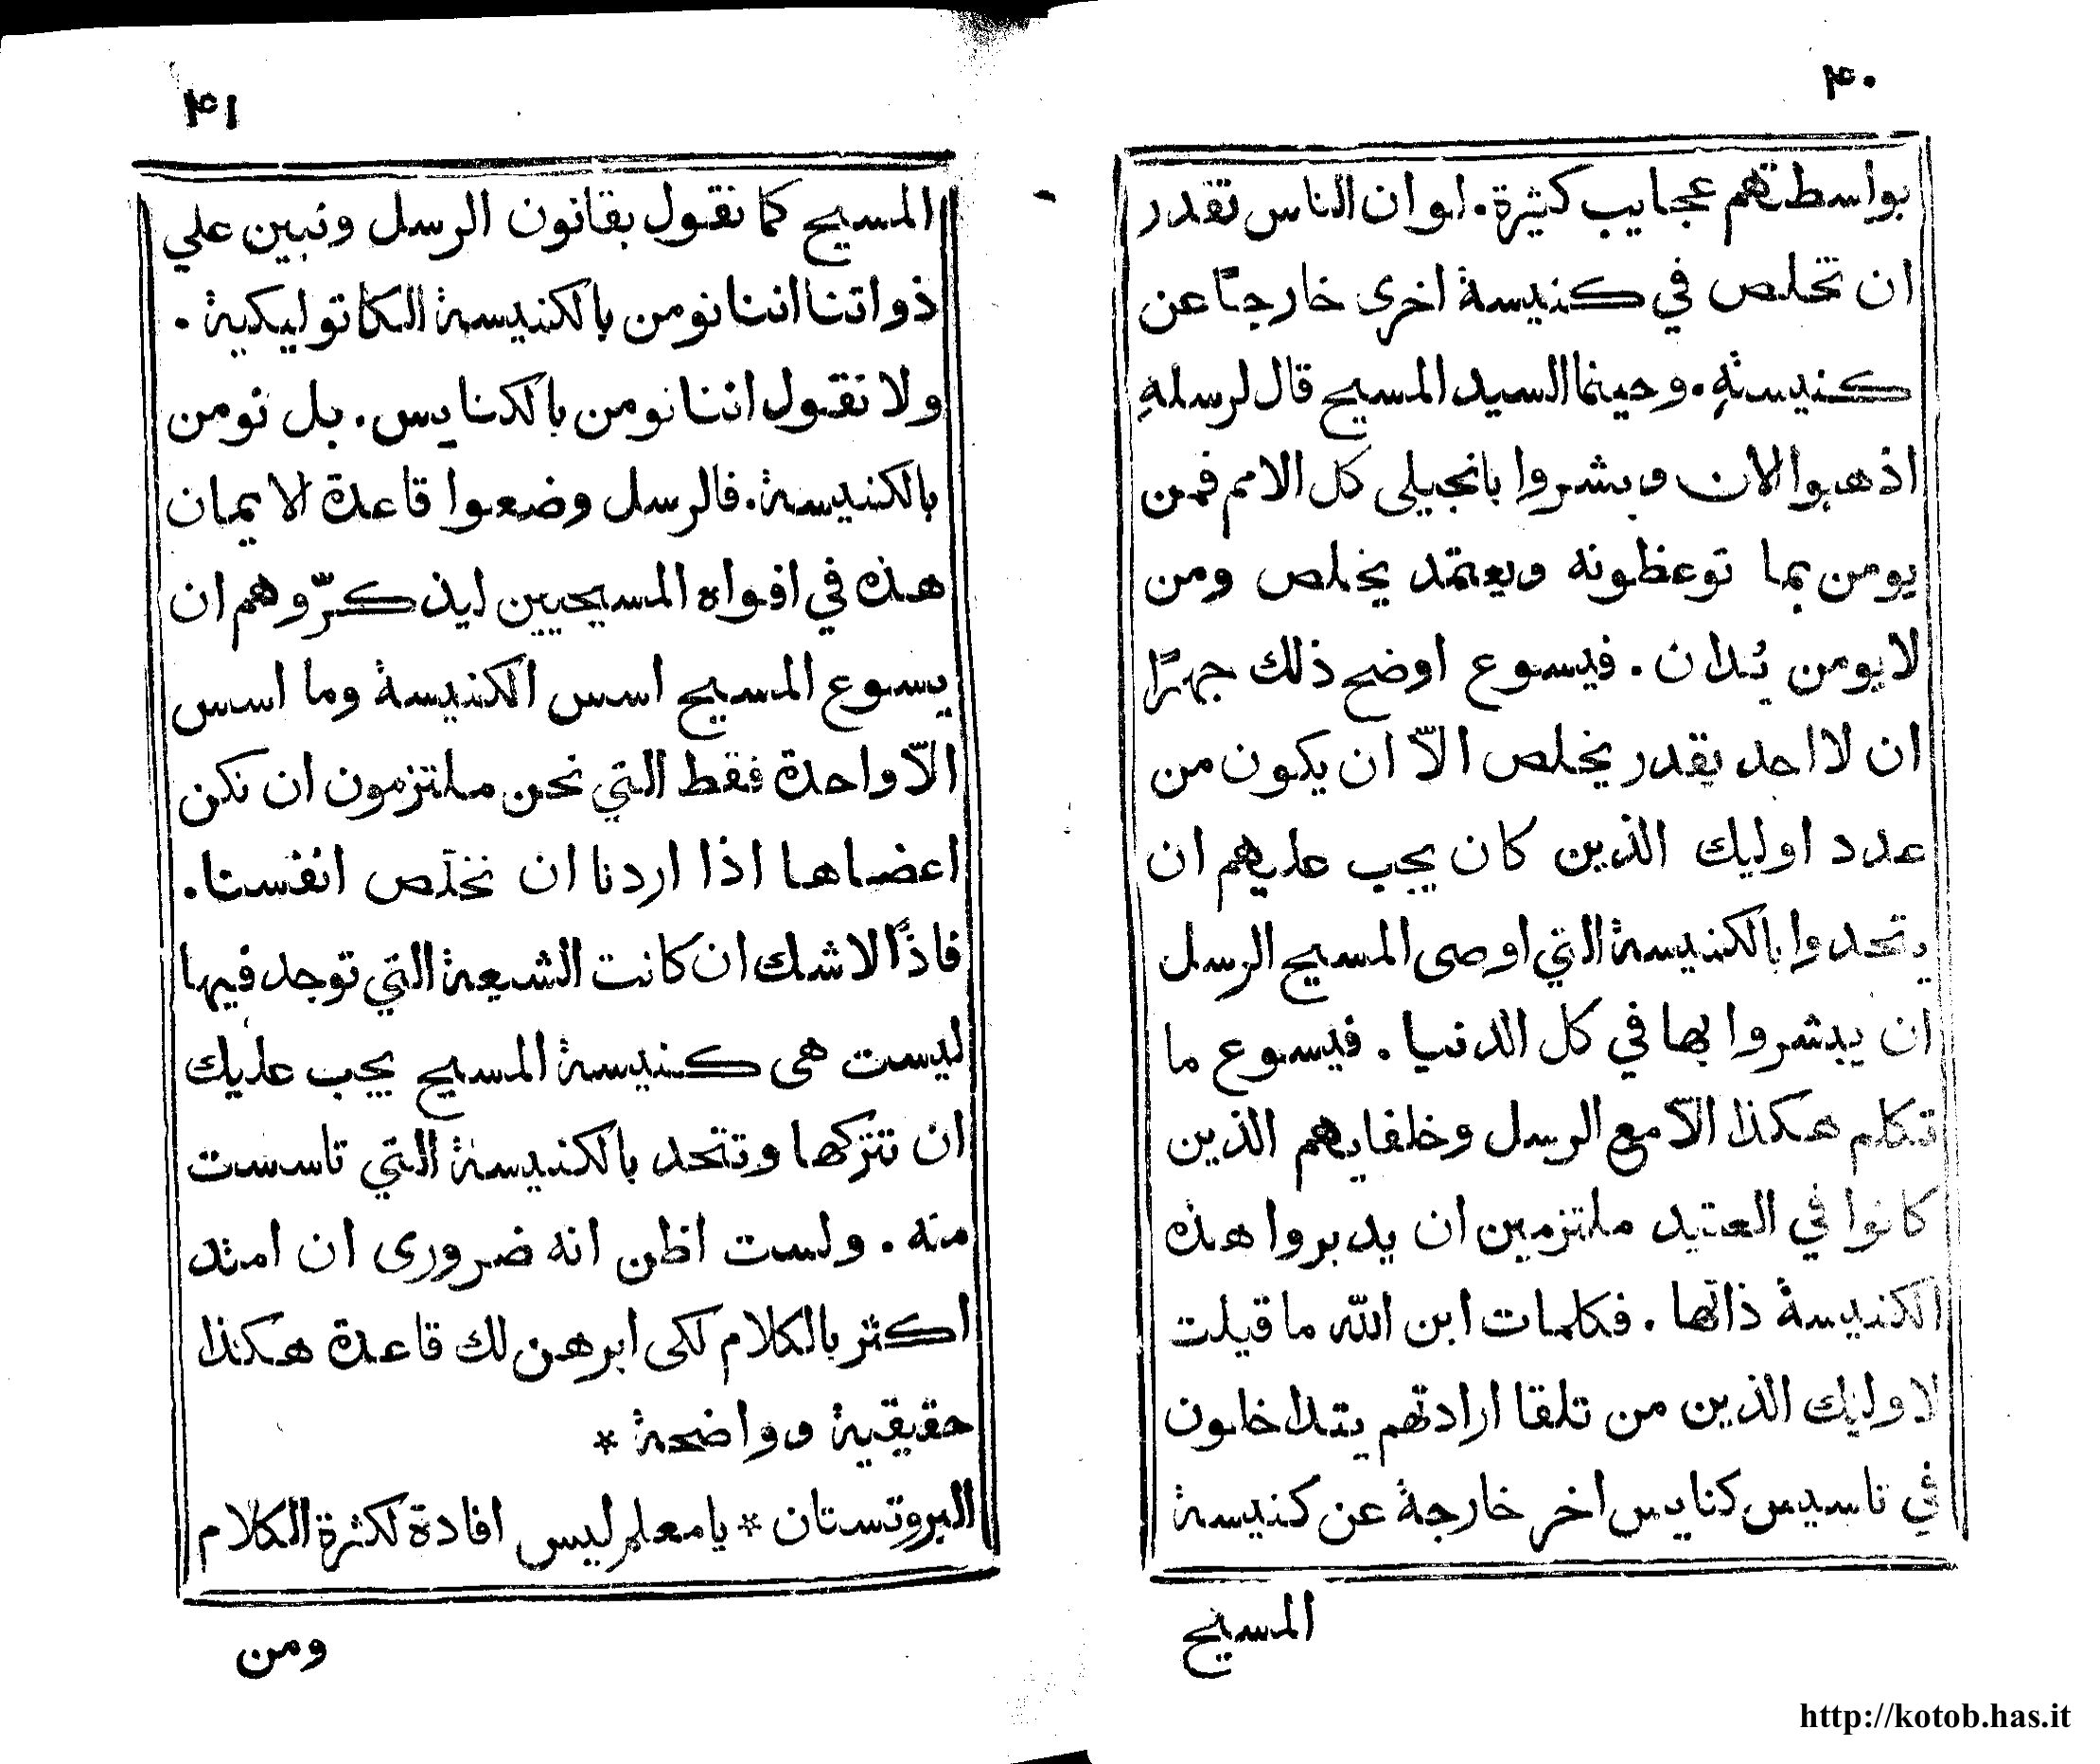 ٤٠
بواسطتهم عجايب كثيرة. لو ان الناس تقدر
ان تخلص في كنيسة اخرى خارجًا عن
كنيستهِ. وحينما السيد المسيح قال لرسلهِ
اذهبوا الان وبشروا بانجيلى كل الامم فمن
يومن بما توعظونه ويعتمد يخلص ومن
لايومن يُدان. فيسوع اوضح ذلك جهرًا
ان لااحد يقدر يخلص الاّ ان يكون من
عدد اوليك الذين كان يجب عليهم ان
يتحدوا بالكنيسة التي اوصى المسيح الرسل
ان يبشروا بها في كل الدنيا. فيسوع ما
تكلم هكذا الاّ مع الرسل وخلفايهم الذين
كانوا في العتيد ملتزمين ان يدبروا هذه
الكنيسة ذاتها. فكلمات ابن الله ما قيلت
لاوليك الذين من تلقا ارادتهم يتداخلون
في تاسيس كنايس اخر خارجة عن كنيسة
المسيح
٤١
المسيح كما نقول بقانون الرسل ونبين علي
ذواتنا اننا نومن بالكنيسة الكاتوليكية.
ولا نقول اننا نومن بالكنايس. بل نومن
بالكنيسة. فالرسل وضعوا قاعدة الايمان
هذه في افواه المسيحيين ليذكرّوهم ان
يسوع المسيح اسس الكنيسة وما اسس
الاّ واحدة فقط التي نحن ملتزمون ان نكن
اعضاها اذا اردنا ان نخلّص انفسنا.
فاذًا لاشك ان كانت الشيعة التي توجد فيها
ليست هى كنيسة المسيح يجب عليك
ان تتركها وتتحد بالكنيسة التي تاسست
منه. ولست اظن انه ضرورى ان امتد
اكثر بالكلام لكى ابرهن لك قاعدة هكذا
حقيقية وواضحة *
البروتستان * يامعلم ليس افادة لكثرة الكلام
ومن
http://kotob.has.it